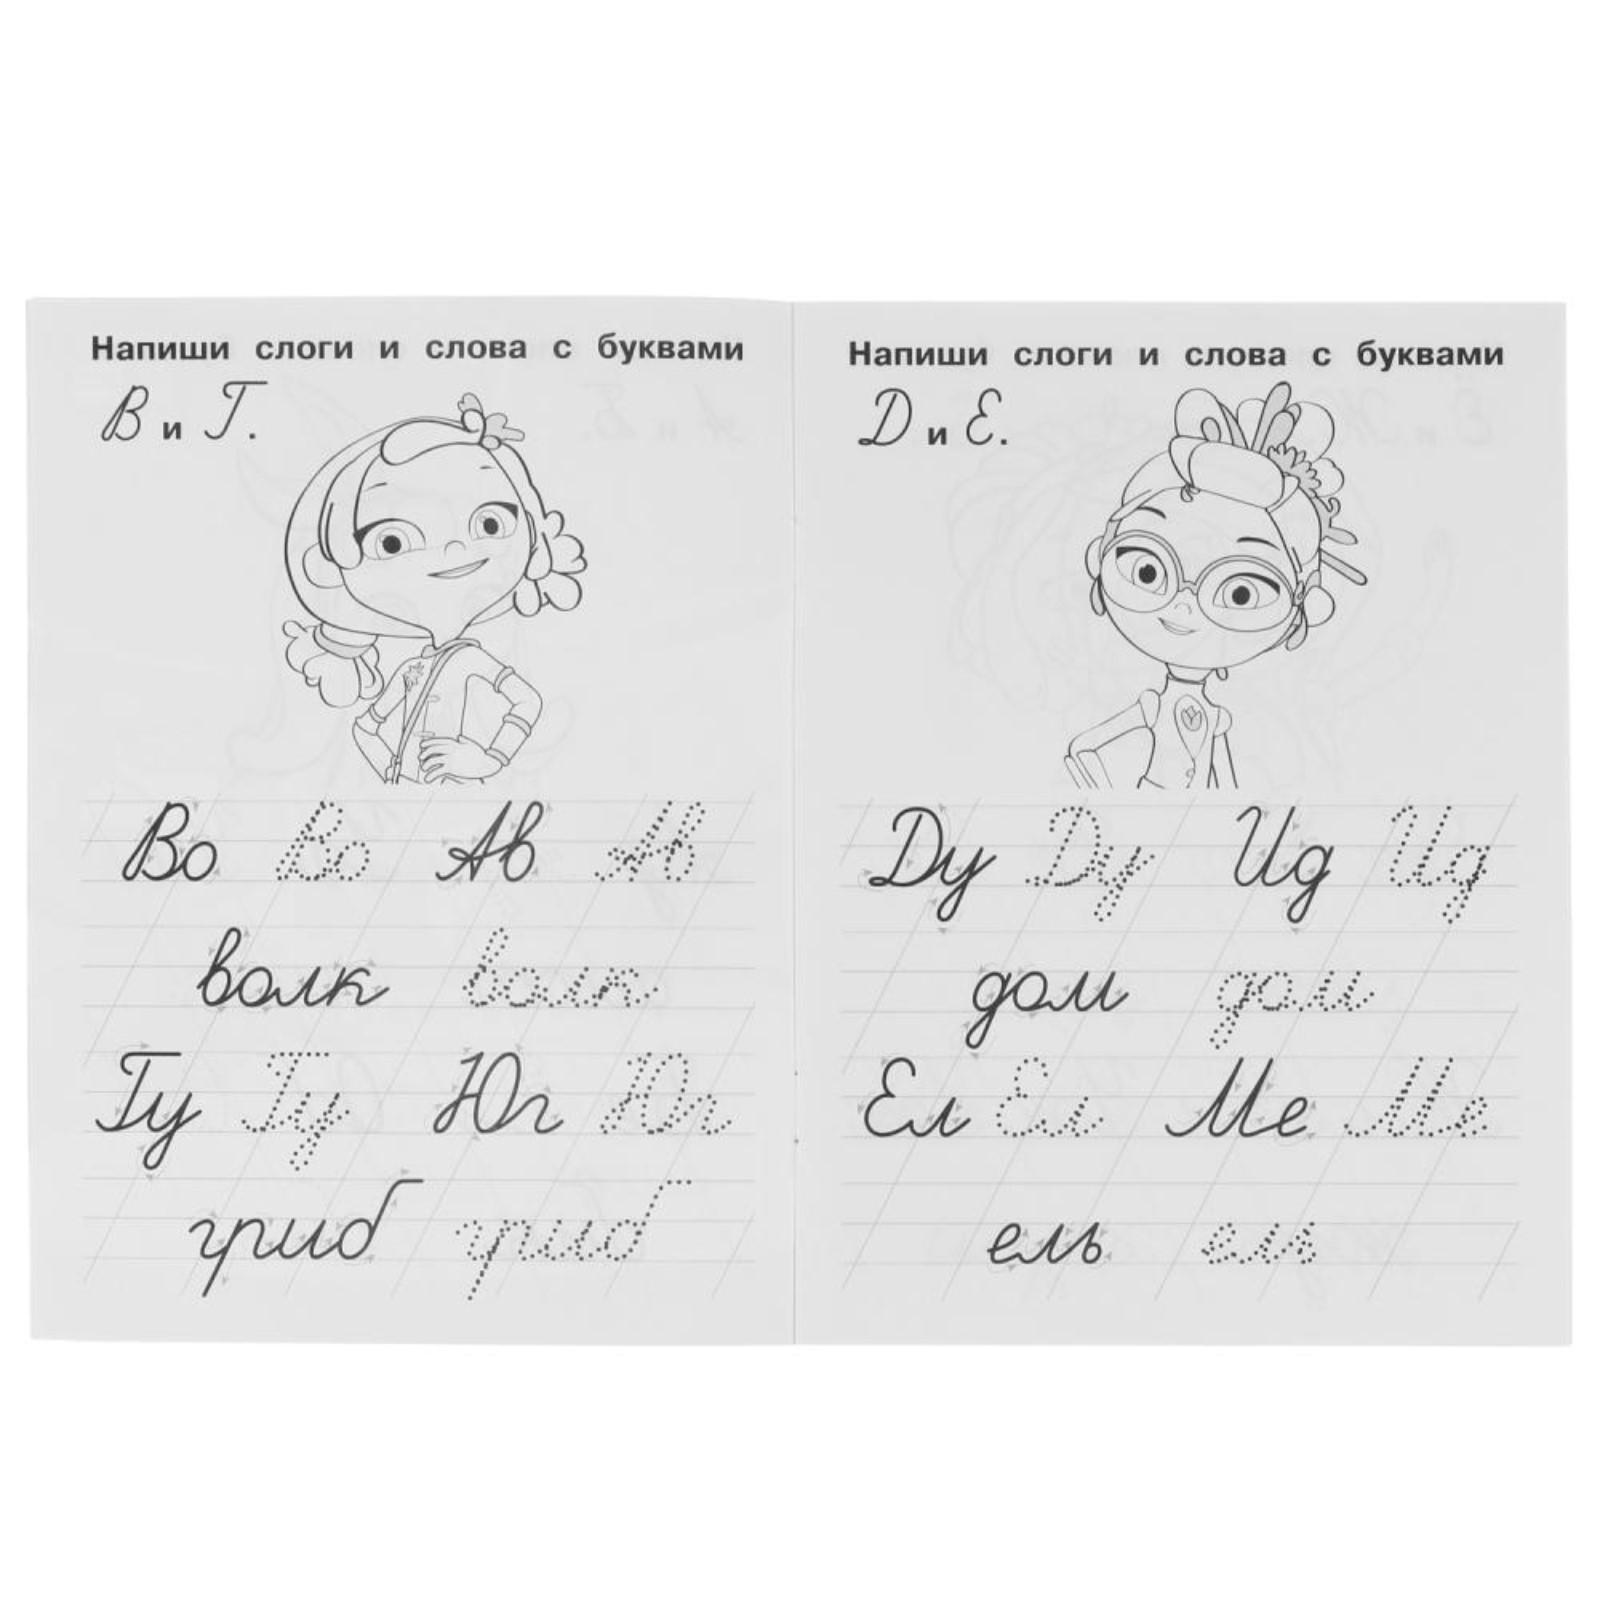 Напиши слоги и слова с буквами
В и Г.
Во Во Ав Ав
волк волк
Гу Гу Юг Юг
гриб гриб
Напиши слоги и слова с буквами
Д и Е.
Ду Ду Ид Ид
дом дом
Ел Ел Ме Ме
ель ель